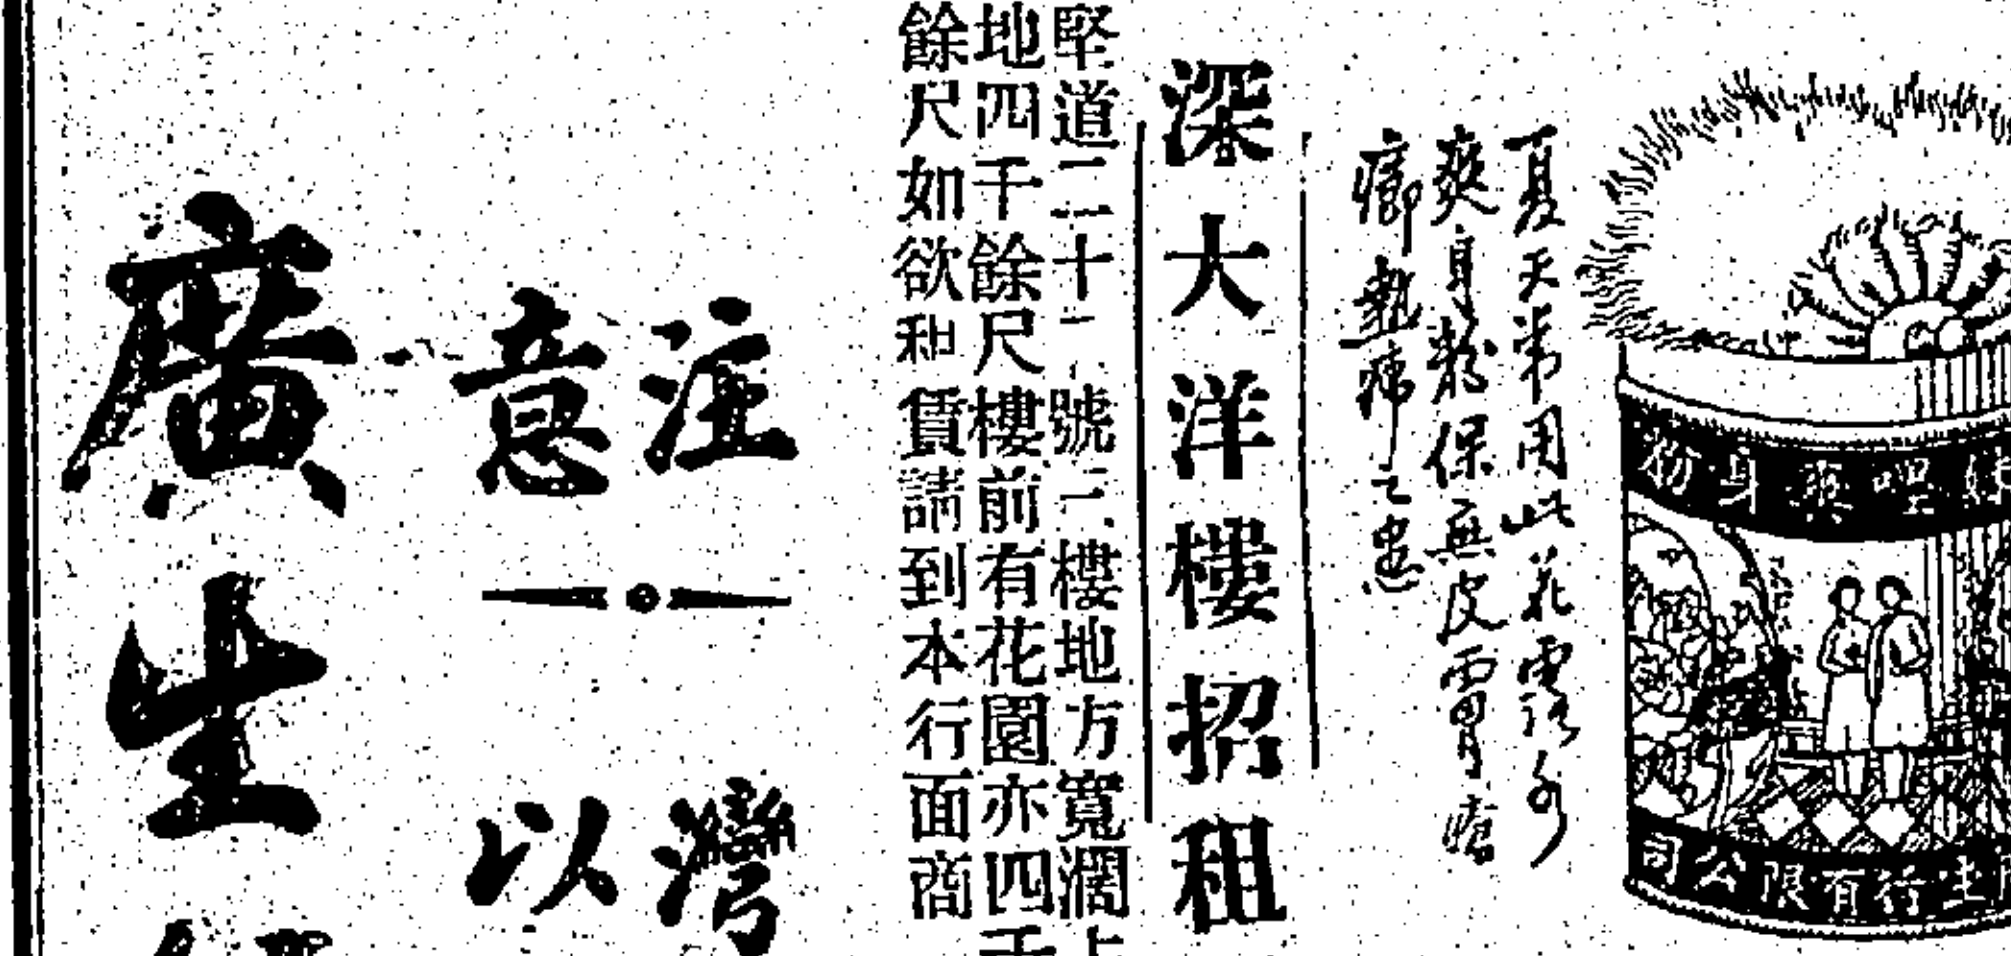 妹嚜爽身粉
生行有限公司
夏天常用此花露水
爽身粉保無皮膚瘡
癤熱痱之患
深大洋樓招租
堅道二號三樓地方寬濶
地四千餘尺樓前有花園亦四千
餘尺如欲租賃請到本行面商
注意
灣
以
廣生